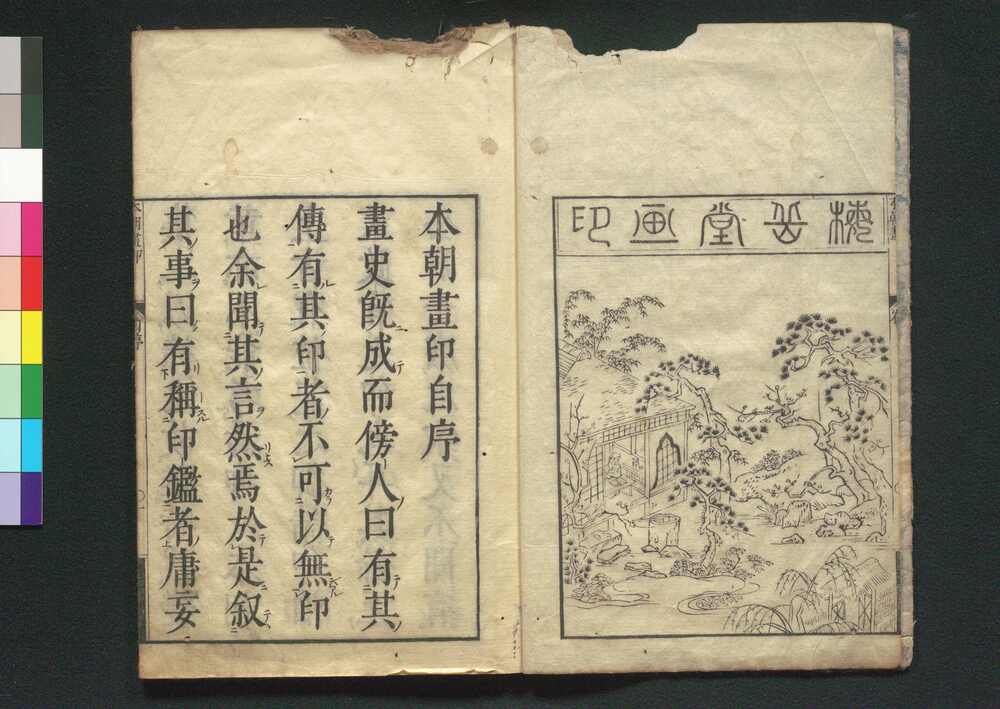 梅岳堂画印
本朝畫印自序
畫史既成而傍人曰有其
傳有其印者不可以無印
也余聞其言然焉於是叙
其事曰有稱印鑑者庸妄